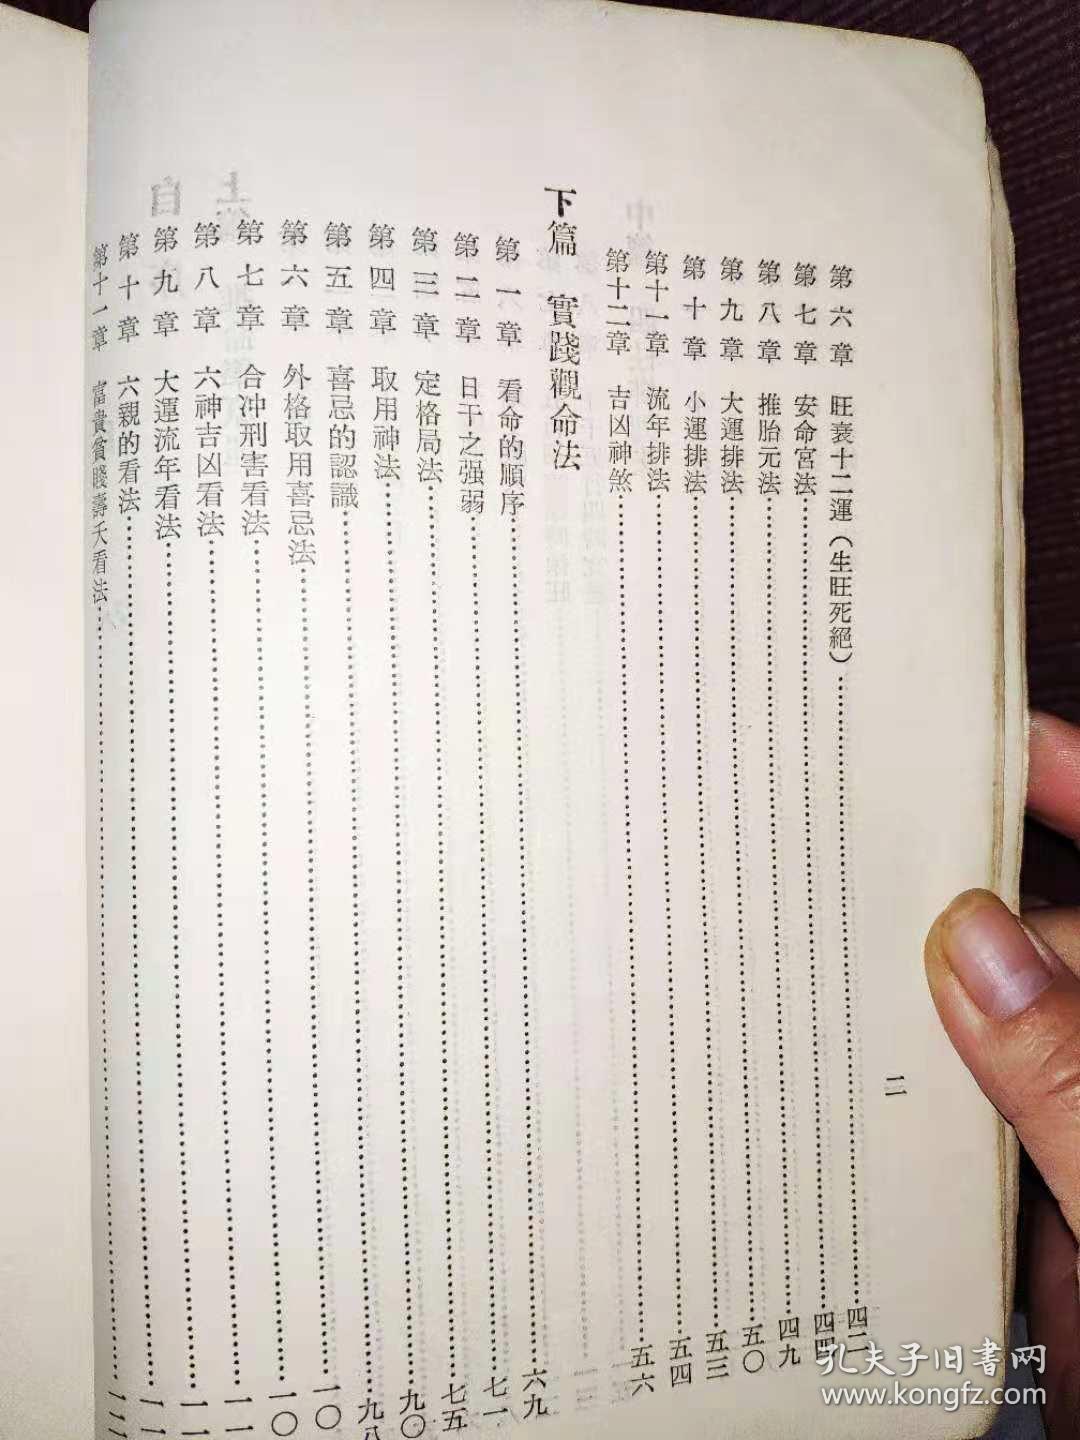 二
第六章 旺衰十二運（生旺死絕）……四二
第七章 安命宮法……四四
第八章 推胎元法……四九
第九章 大運排法……五〇
第十章 小運排法……五三
第十一章 流年排法……五四
第十二章 吉凶神煞……五六
下篇 實踐觀命法
第一章 看命的順序……六九
第二章 日干之强弱……七一
第三章 定格局法……七五
第四章 取用神法……九〇
第五章 喜忌的認識……九八
第六章 外格取用喜忌法……一〇
第七章 合冲刑害看法……一〇
第八章 六神吉凶看法……一一
第九章 大運流年看法……一一
第十章 六親的看法……一一
第十一章 富貴貧賤壽夭看法……一二
孔夫子旧书网
www.kongfz.com